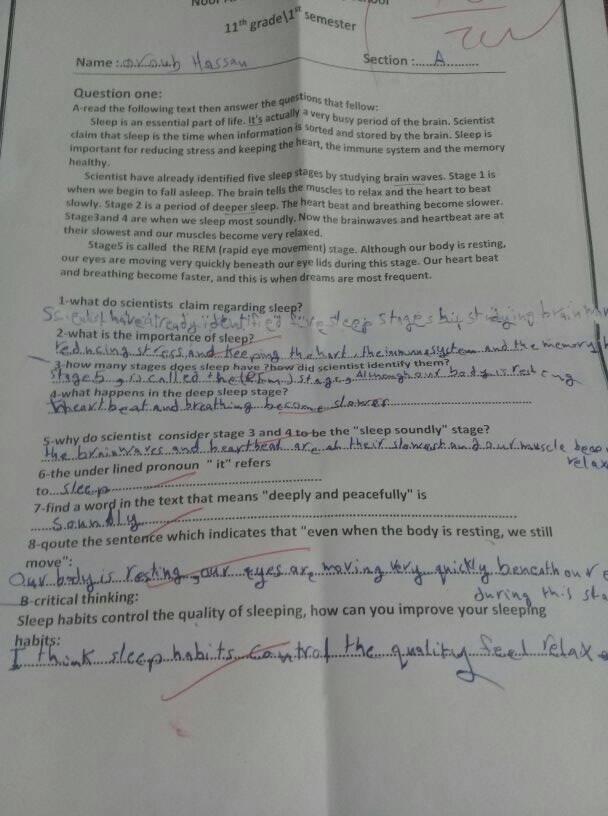 11th grade\1st semester
Name :..oroub Hassan Section :.....A.........
Question one:
A-read the following text then answer the questions that fellow:
Sleep is an essential part of life. It's actually a very busy period of the brain. Scientist
claim that sleep is the time when information is sorted and stored by the brain. Sleep is
important for reducing stress and keeping the heart, the immune system and the memory
healthy.
Scientist have already identified five sleep stages by studying brain waves. Stage 1 is
when we begin to fall asleep. The brain tells the muscles to relax and the heart to beat
slowly. Stage 2 is a period of deeper sleep. The heart beat and breathing become slower.
Stage3and 4 are when we sleep most soundly. Now the brainwaves and heartbeat are at
their slowest and our muscles become very relaxed.
Stage5 is called the REM (rapid eye movement) stage. Although our body is resting,
our eyes are moving very quickly beneath our eye lids during this stage. Our heart beat
and breathing become faster, and this is when dreams are most frequent.
1-what do scientists claim regarding sleep?
Scientist have already identified five sleep stages by studying brain
2-what is the importance of sleep?
reducing stress and keeping the hart, the immune system and the memory
3-how many stages does sleep have ?how did scientist identify them?
Stage 5 is called the (REm) stage. Although our body is resteng
4-what happens in the deep sleep stage?
heart beat and breathing become slower
5-why do scientist consider stage 3 and 4 to be the "sleep soundly" stage?
the brain waves and heartbeat are at their slowest and our muscle
relax
6-the under lined pronoun " it" refers
to...sleep
7-find a word in the text that means "deeply and peacefully" is
Soundly
8-qoute the sentence which indicates that "even when the body is resting, we still
move":
Our body is resting, our eyes are moving very quickly beneath our
during this
B-critical thinking:
Sleep habits control the quality of sleeping, how can you improve your sleeping
habits:
I think sleep habits control the quality feel relax